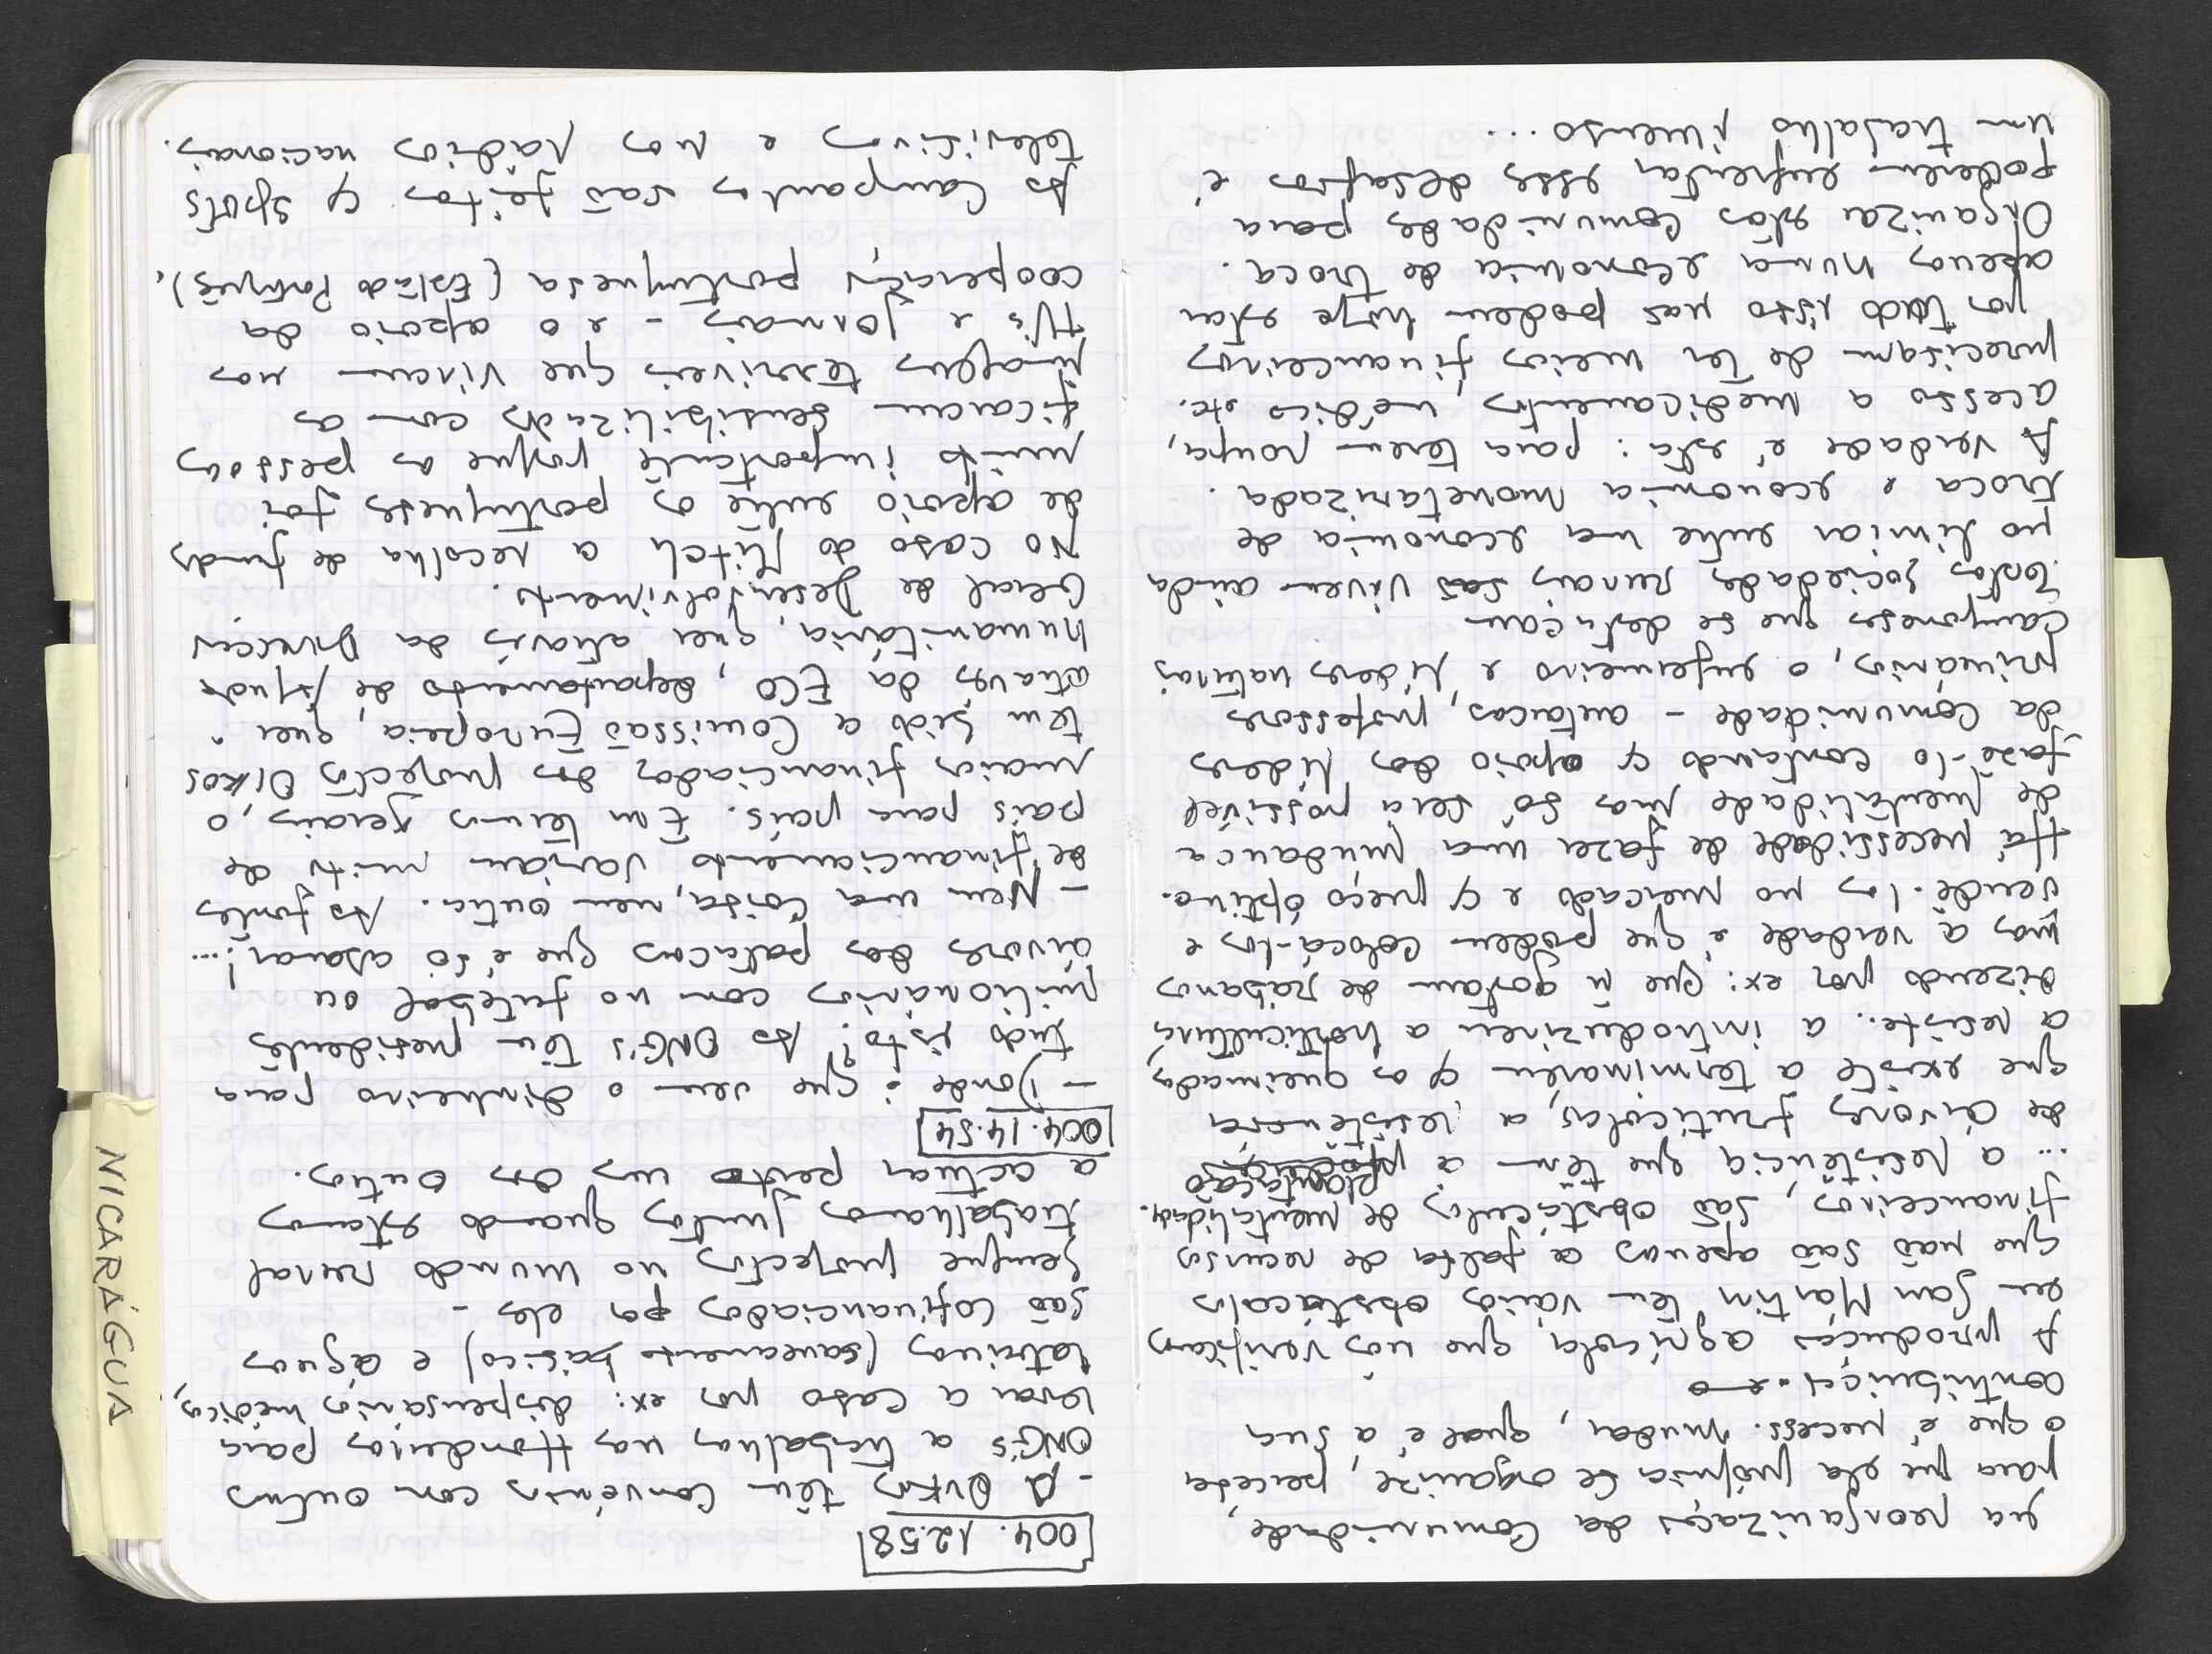 na reorganização da Comunidade,
para que ela própria se organize, perceba
o que é necess. mudar, qual é a sua
contribuição.
A produção agrícola que nós verificamos
em San Martin tem vários obstáculos
que não são apenas a falta de recursos
financeiros, são obstáculos de mentalidade.
plantação
... a resistência que têm à
de árvores frutícolas, a resistência
que existe a terminarem c/ as queimadas,
a resiste. a introduzirem a horticultura
dizendo por ex: que ñ gostam de rábanos
mas a verdade é que podem colocá-los e
vendê-los no mercado e c/ preço óptimo.
Há necessidade de fazer uma mudança
de mentalidade mas só será possível
fazê-lo contando c/ apoio dos líderes
da Comunidade - autarcas, professores
primários, o enfermeiro e líderes naturais
camponeses que se destacam
Estas sociedades rurais vivem ainda
no limiar entre uma economia de
troca e economia monetarizada.
A verdade é esta: para terem roupa,
acesso a medicamentos, médico etc.
precisam de ter meios financeiros
por tudo isto nas podem hoje estar
apenas numa economia de troca.
Organizar estas comunidades para
poderem enfrentar esses desafios é
um trabalho imenso...
004. 12.58
- A Oikos têm convénios com outras
ONG's a trabalhar nas Honduras para
levar a caso por ex: dispensários médicos,
latrinas (saneamento básico) e águas
são cofinanciados por eles -
Sempre projectos no mundo rural
trabalhamos juntos quando estamos
a actuar perto uns dos outros.
004. 14.54
- Donde é que vem o dinheiro para
tudo isto? As ONG's têm presidentes
milionários com no futebol ou
árvores das patacas que é só abanar!...
- Nem uma coisa, nem outra. As fontes
de financiamento variam muito de
país para país. Em termos gerais, o
maior financiador dos projectos Oikos
tem sido a Comissão Europeia, quer
através da ECO, departamento de Ajuda
humanitária, quer através da Direcção
Geral de Desenvolvimento.
No caso do Mitch a recolha de fundos
de apoio entre os portugueses foi
muito importante porque as pessoas
ficaram sensibilizadas com as
imagens terríveis que viram nas
tv's e jornais - e o apoio da
cooperação portuguesa (Estado Português).
As campanhas são feitas c/ spots
televisivos e nas rádios nacionais.
NICARÁGUA